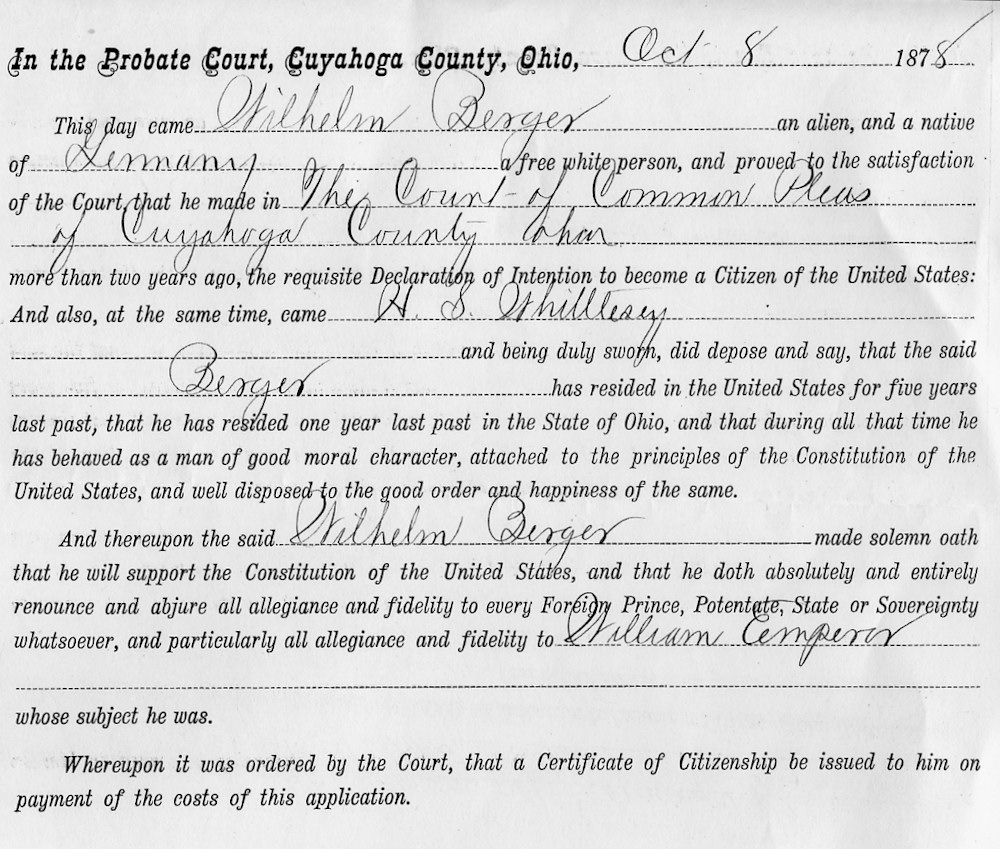 In the Probate Court, Cuyahoga County, Ohio, Oct 8 1878
This day came Wilhelm Berger an alien, and a native
of Germany a free white person, and proved to the satisfaction
of the Court, that he made in The Court of Common Pleas
of Cuyahoga County Ohio
more than two years ago, the requisite Declaration of Intention to become a Citizen of the United States:
And also, at the same time, came H. S. Whittlesey
and being duly sworn, did depose and say, that the said
Berger has resided in the United States for five years
last past, that he has resided one year last past in the State of Ohio, and that during all that time he
has behaved as a man of good moral character, attached to the principles of the Constitution of the
United States, and well disposed to the good order and happiness of the same.
And thereupon the said Wilhelm Berger made solemn oath
that he will support the Constitution of the United States, and that he doth absolutely and entirely
renounce and abjure all allegiance and fidelity to every Foreign Prince, Potentate, State or Sovereignty
whatsoever, and particularly all allegiance and fidelity to William Emperor
whose subject he was.
Whereupon it was ordered by the Court, that a Certificate of Citizenship be issued to him on
payment of the costs of this application.